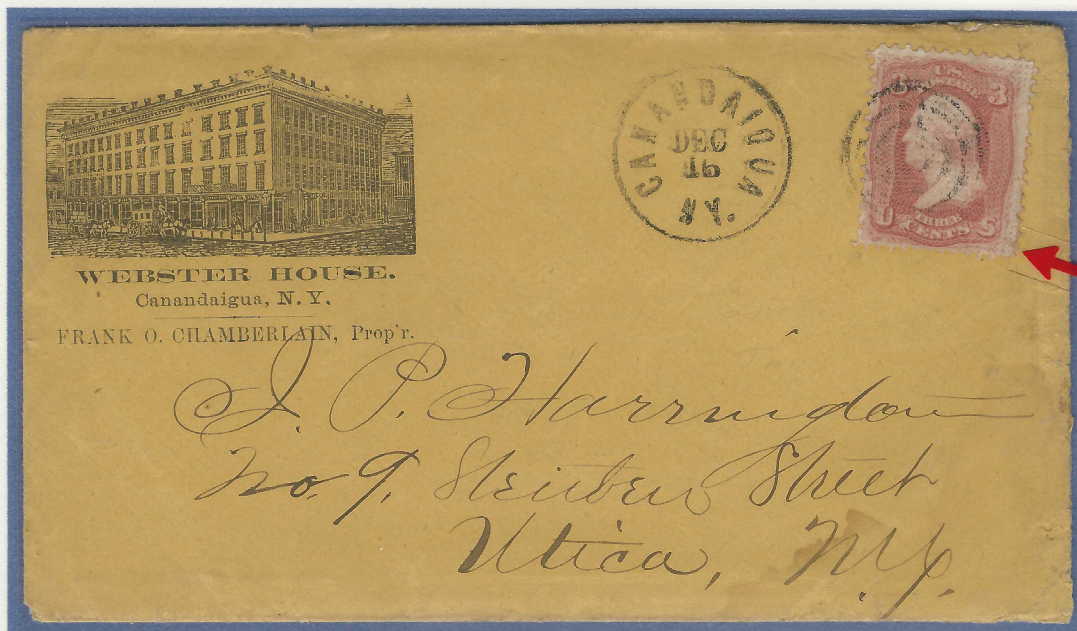 WEBSTER HOUSE.
Canandaigua, N. Y.
FRANK O. CHAMBERLAIN, Prop'r.
CANANDAIGUA
DEC
16
N.Y.
U.S.
3
U THREE S
CENTS
J. P. Harrington
No. 9. Steuben Street
Utica, N.Y.